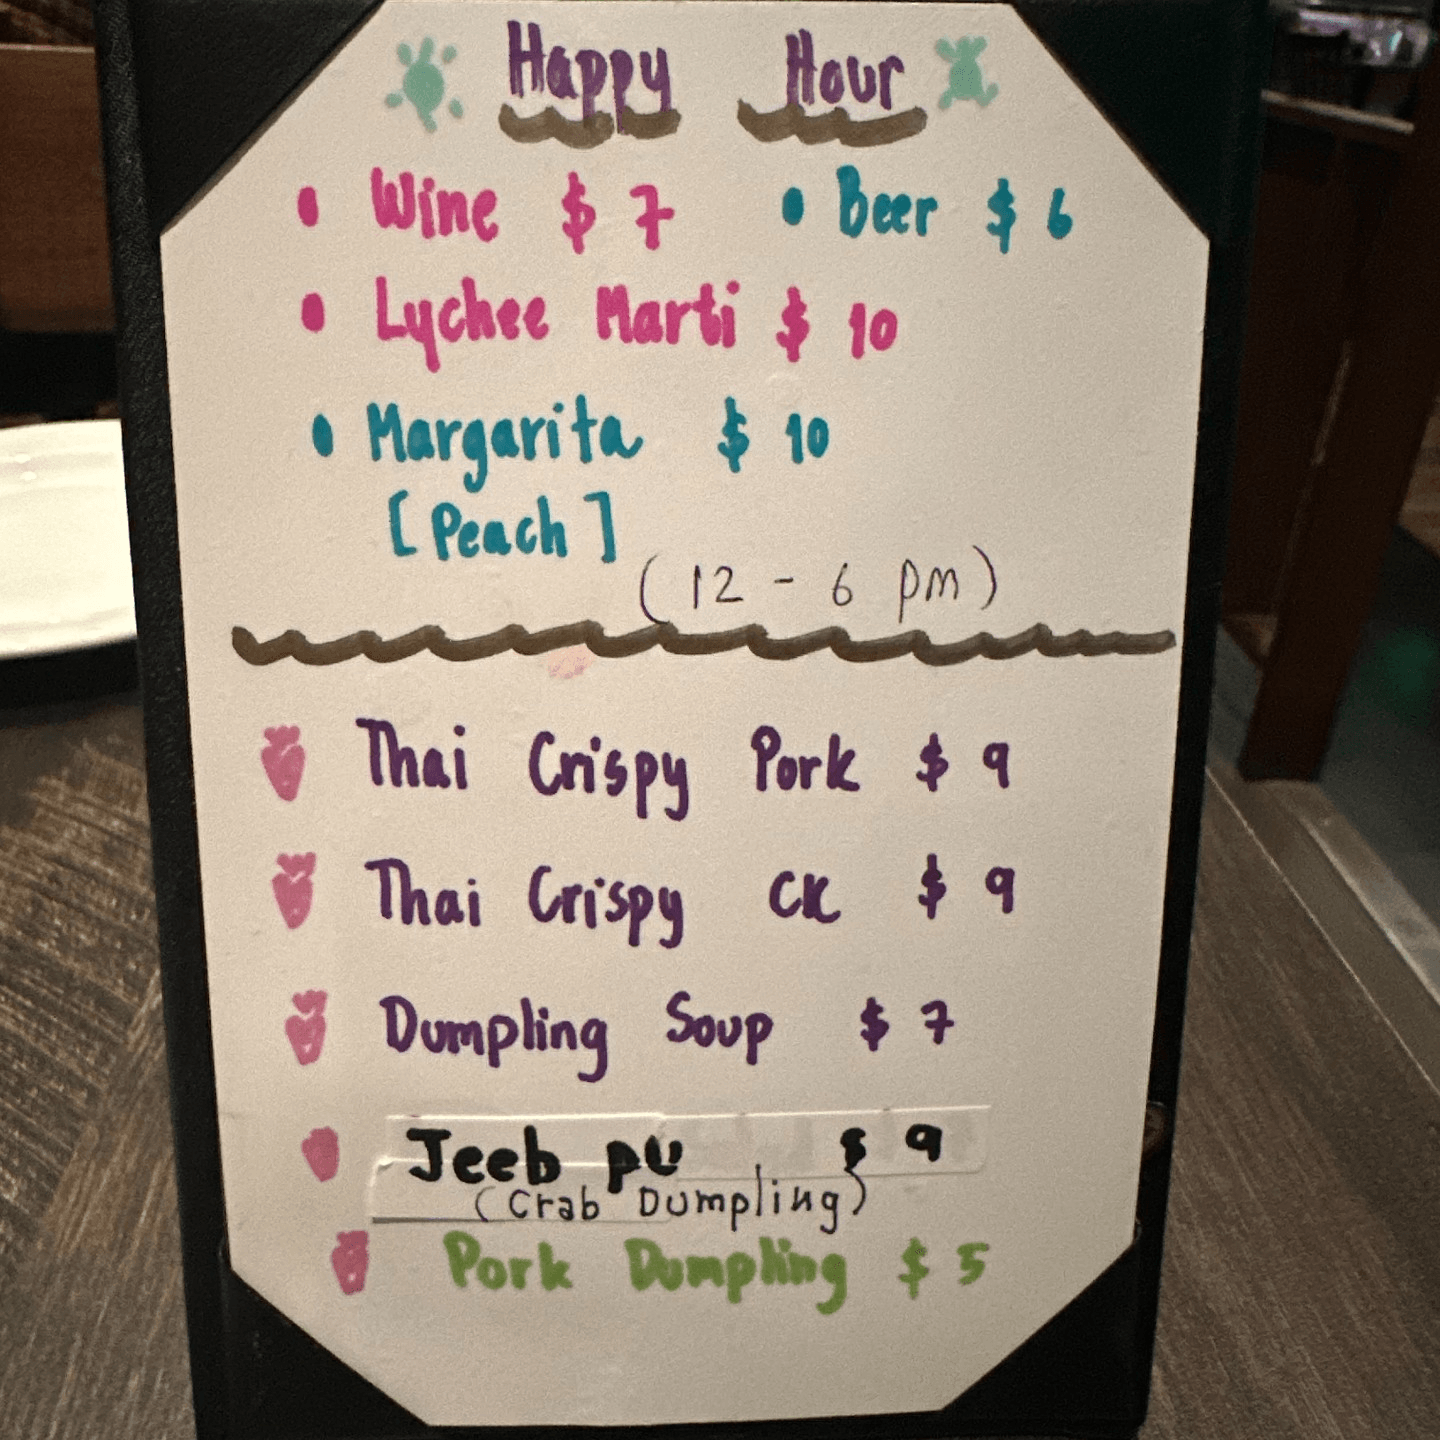 Happy Hour
• Wine $ 7 • Beer $ 6
• Lychee Marti $ 10
• Margarita $ 10
[ Peach ]
( 12 - 6 pm )
Thai Crispy Pork $ 9
Thai Crispy CK $ 9
Dumpling Soup $ 7
Jeeb pu $ 9
(Crab Dumpling)
Pork Dumpling $ 5